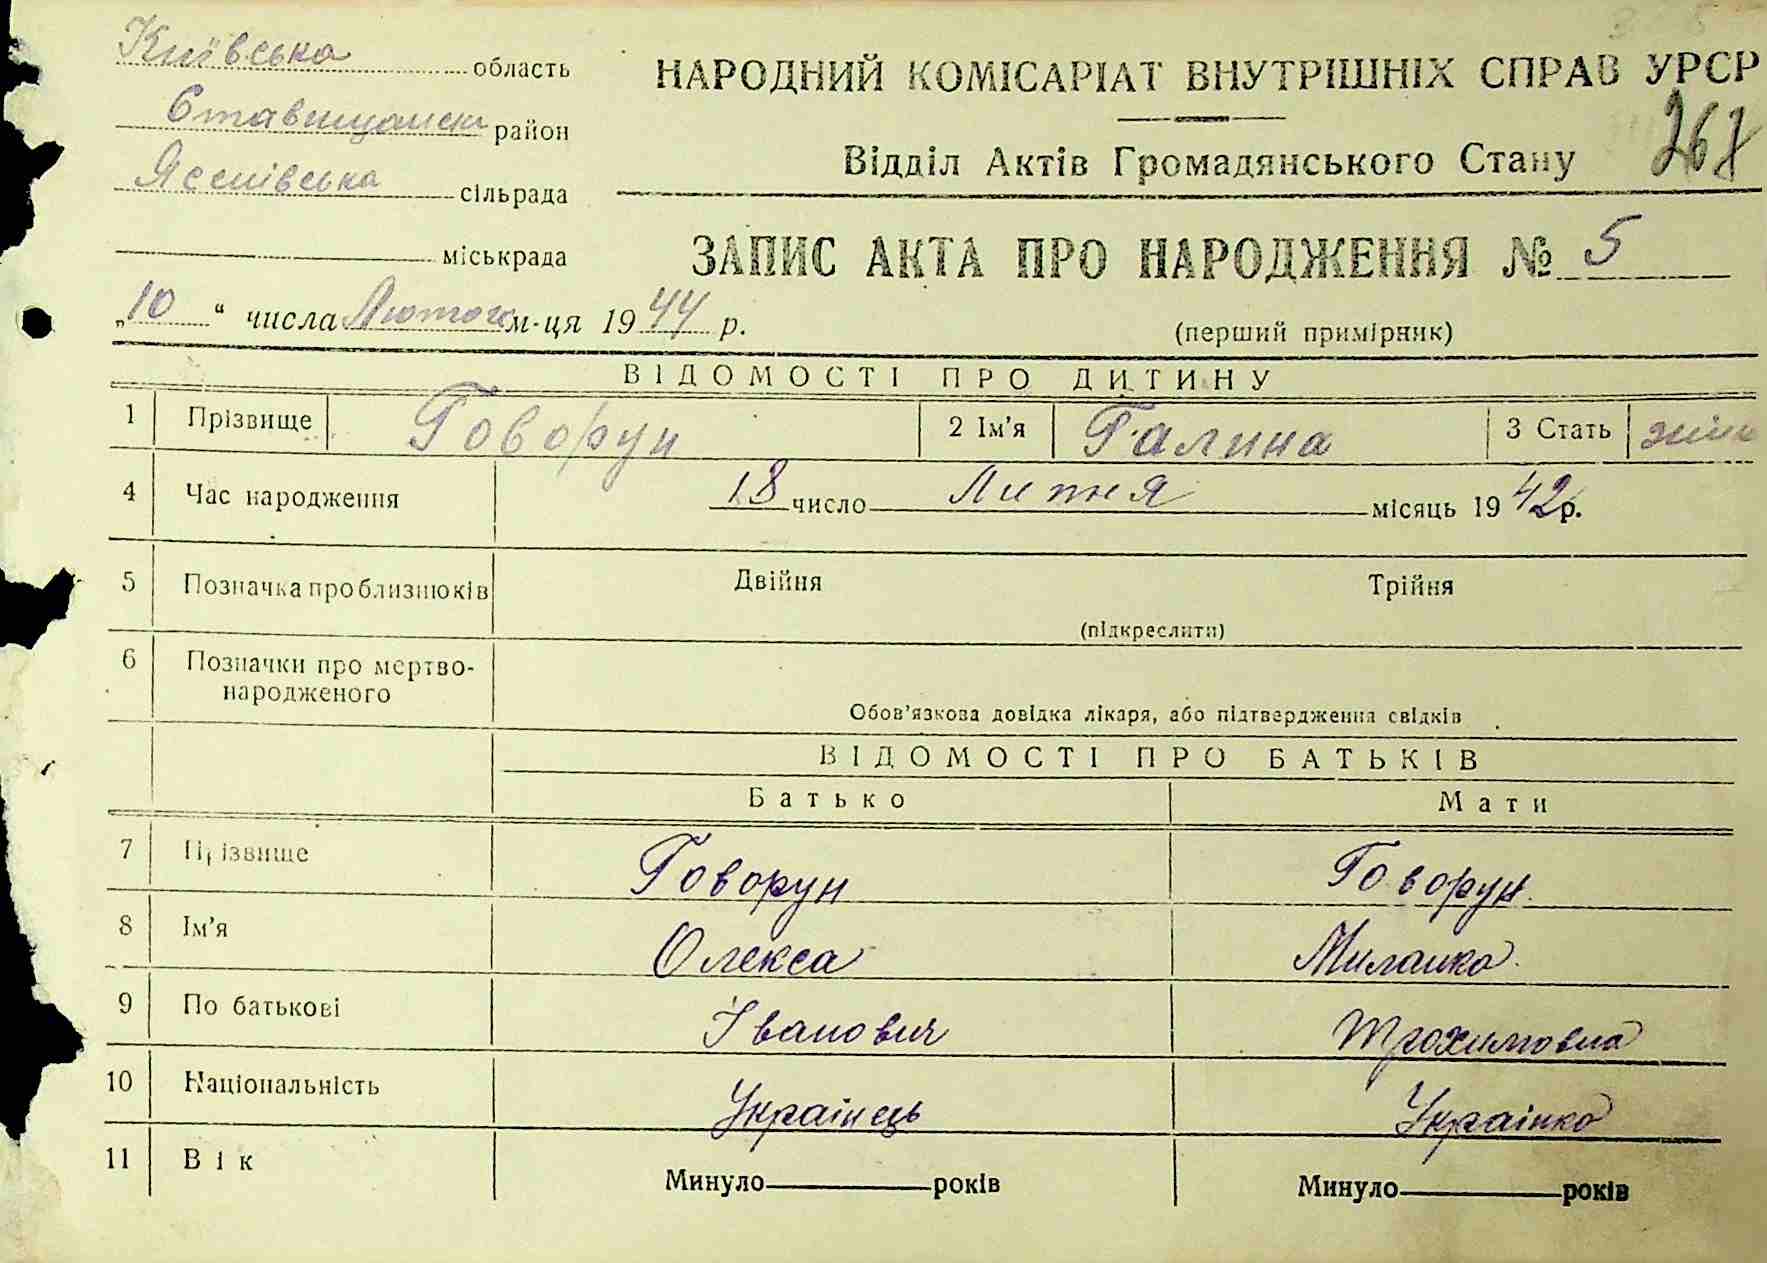 Київська область
НАРОДНИЙ КОМІСАРІАТ ВНУТРІШНІХ СПРАВ УРСР
Ставищанськ район
267
Відділ Актів Громадянського Стану
Ясенівська сільрада
міськрада
ЗАПИС АКТА ПРО НАРОДЖЕННЯ № 5
„10“ числа Лютого м-ця 1944 р.
(перший примірник)
ВІДОМОСТІ ПРО ДИТИНУ
1 Прізвище Говорун 2 Ім'я Галина 3 Стать жін
4 Час народження 18 число Липня місяць 1942 р.
5 Позначка про близнюків Двійня Трійня
(підкреслити)
6 Позначки про мертво-
народженого
Обов'язкова довідка лікаря, або підтвердження свідків
ВІДОМОСТІ ПРО БАТЬКІВ
Батько Мати
7 Прізвище Говорун Говорун
8 Ім'я Олекса Миланка
9 По батькові Іванович Трохимовна
10 Національність Українець Українка
11 Вік Минуло років Минуло років